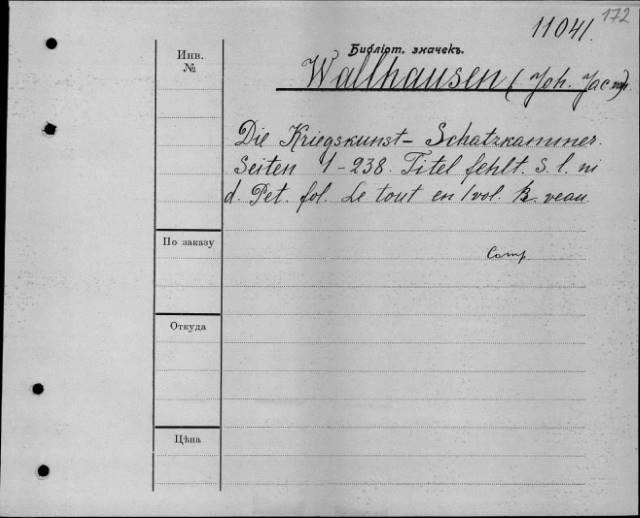 172
11041.
Библіот. значекъ.
Инв.
№
Wallhausen (Joh. Jac
Die Kriegskunst-Schatzkammer.
Seiten 1-238. Titel fehlt. S. l. ni
d. Pet. fol. Le tout en 1 vol. veau
По заказу
Comp.
Откуда
Цѣна